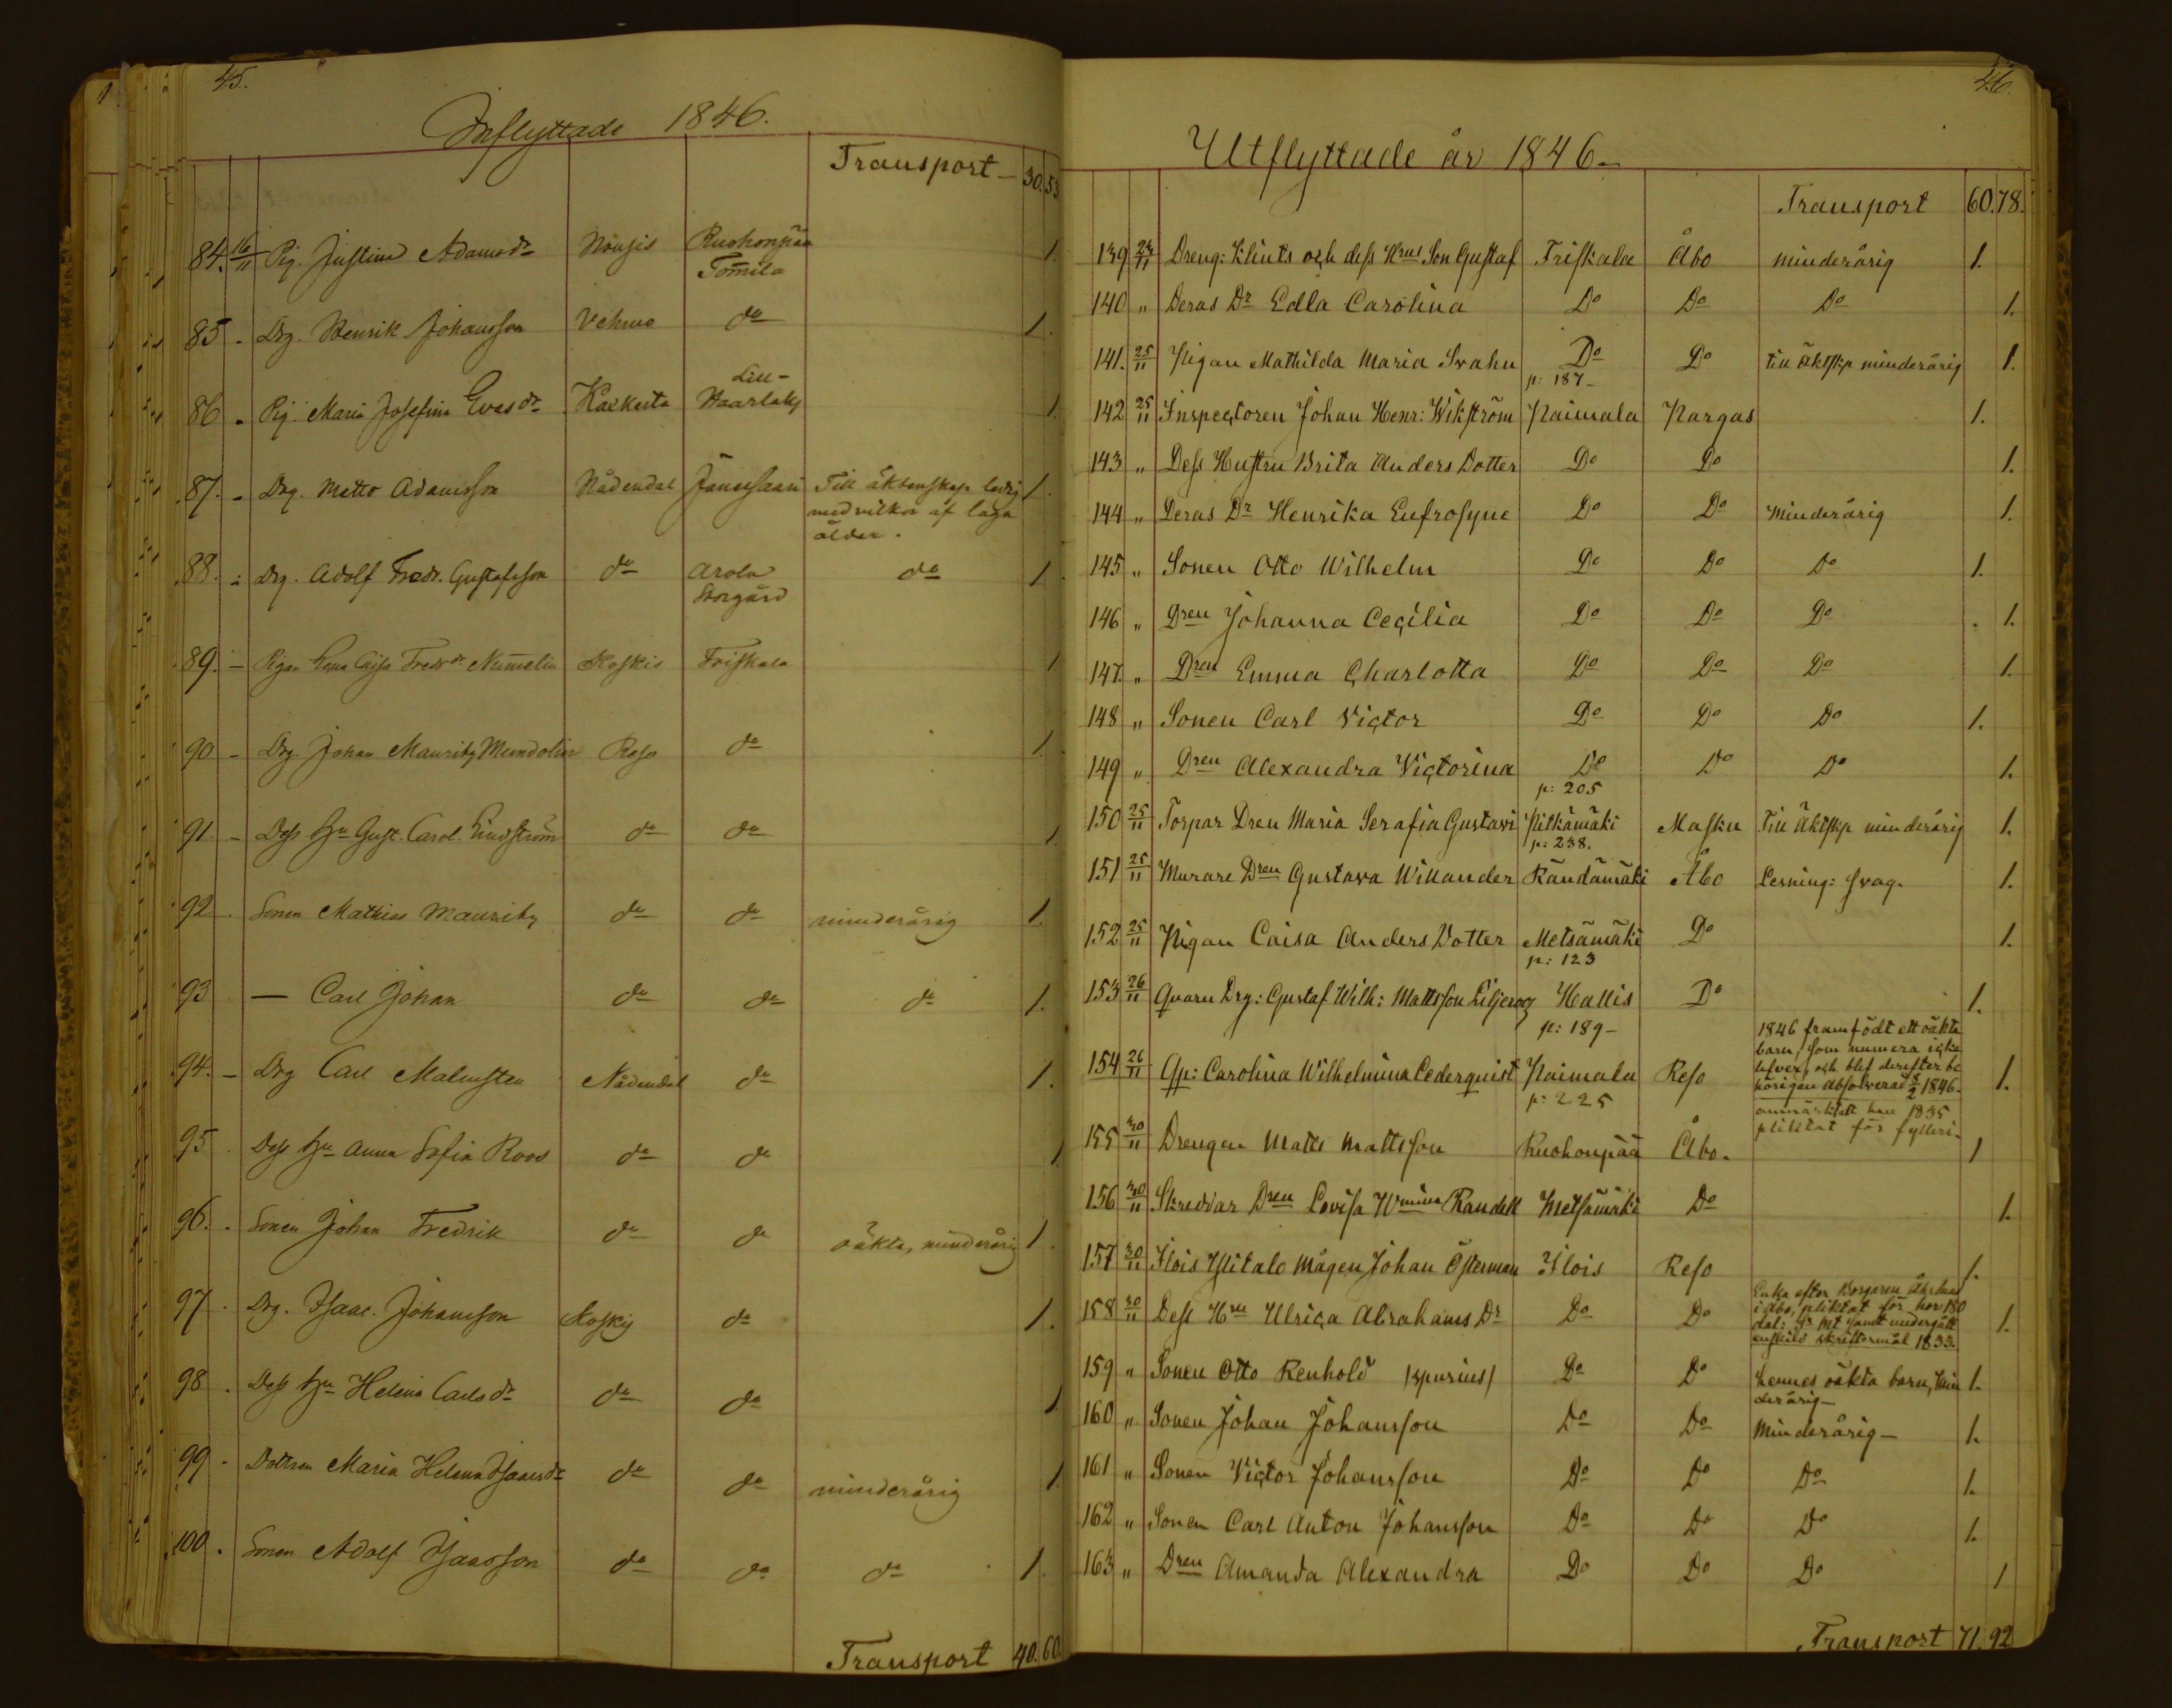 45.
Inflyttade 1846.
Transport - 30. 53
84. 16/11 Pig. Justina Adamsdr Nousis Ruohonpää Tomila 1.
85 - Drg. Henrik Johansson Vehmo do 1.
86 - Pig. Maria Josefina Evasdr Kakerta Lill-Haarlaks 1.
87. - Drg. Matts Adamsson Nådendal Jänessaari Till äktenskap ledig 1.
med vilkor af laga
ålder.
88. - Drg. Adolf Fredr. Gustafsson do Arola Storgård do 1.
89. - Pigan Caisa Fredrdr Numelin Koskis Friskala 1
90 - Drg. Johan Mauritz Mendolin Reso do 1.
91. - Dess Hu Gust. Carol. Lindström do do 1.
92 . Sonen Mathias Mauritz do do minderårig 1.
93 . — Carl Johan do do do 1.
94. - Drg Carl Malmsten Nådendal do 1.
95 . Dess Hu Anna Sofia Roos do do 1.
96. . Sonen Johan Fredrik do do oäkta, minderårig 1.
97 . Drg. Isaac Johansson Koskis do 1.
98 . Dess Hu Helena Carlsdr do do 1.
99 . Dottren Maria Helena Isaacsdr do do minderårig 1.
100 . Sonen Adolf Isaacsson do do do 1.
Transport 40. 60.
46.
Utflyttade år 1846-
Transport 60. 78.
139 23/11 Dreng: Klints och dess Hrus Son Gustaf Friskala Åbo minderårig 1.
140 " Deras Dr Edla Carolina Do Do Do 1.
141. 25/11 Pigan Mathilda Maria Svahn Do Do till Äktskp minderårig 1.
p: 187-
142 25/11 Inspectoren Johan Henr: Wikström Paimala Pargas 1.
143 " Dess Hustru Brita Anders Dotter Do Do 1.
144 " Deras Dr Henrika Eufrosyne Do Do Minderårig 1.
145 " Sonen Otto Wilhelm Do Do Do 1.
146 " Dren Johanna Cecilia Do Do Do 1.
147. " Dren Emma Charlotta Do Do Do 1.
148 " Sonen Carl Victor Do Do Do 1.
149 " Dren Alexandra Victorina Do Do Do 1.
p: 205
150 25/11 Torpar Dren Maria Serafia Gustavi Pitkämäki Masku Till Äktskp minderårig 1.
p: 238.
151 25/11 Murare Dren Gustava Willander Rändämäki Åbo Lesning: svag. 1.
152 25/11 Pigan Caisa Anders Dotter Metsämäki Do 1.
p: 123
153 26/11 Qvarn Drg: Gustaf Wilh: Mattsson Liljeroq Hallis Do 1.
p: 189-
1846 framfödt ett oäkta
barn, som numera icke
lefver, och blef derefter be
hörigen absolverad 1846.
154 26/11 Qp: Carolina Wilhelmina Cederquist Paimala Reso 1.
p: 225
1835
pliktat för fylleri.
155 30/11 Drengen Matts Mattsson Ruohonpää Åbo. 1
156 30/11 Skreddar Dren Lovisa Wmina Randell Metsämäki Do 1.
157 30/11 Ilois Ylitalo Mågen Johan Österman Ilois Reso 1.
Enka efter Borgaren
i Åbo, pliktat för hor 180
dal: Sr Mt samt undergått
enskild skriftermål 1833.
158 30/11 Dess Hru Ulrica Abrahams Dr Do Do 1.
159 " Sonen Otto Renhold /spurius/ Do Do hennes oäkta barn, Min 1.
derårig-
160 " Sonen Johan Johansson Do Do Minderårig- 1.
161 " Sonen Victor Johansson Do Do Do 1.
162 " Sonen Carl Anton Johansson Do Do Do 1.
163 " Dren Amanda Alexandra Do Do Do 1
Transport 71. 92